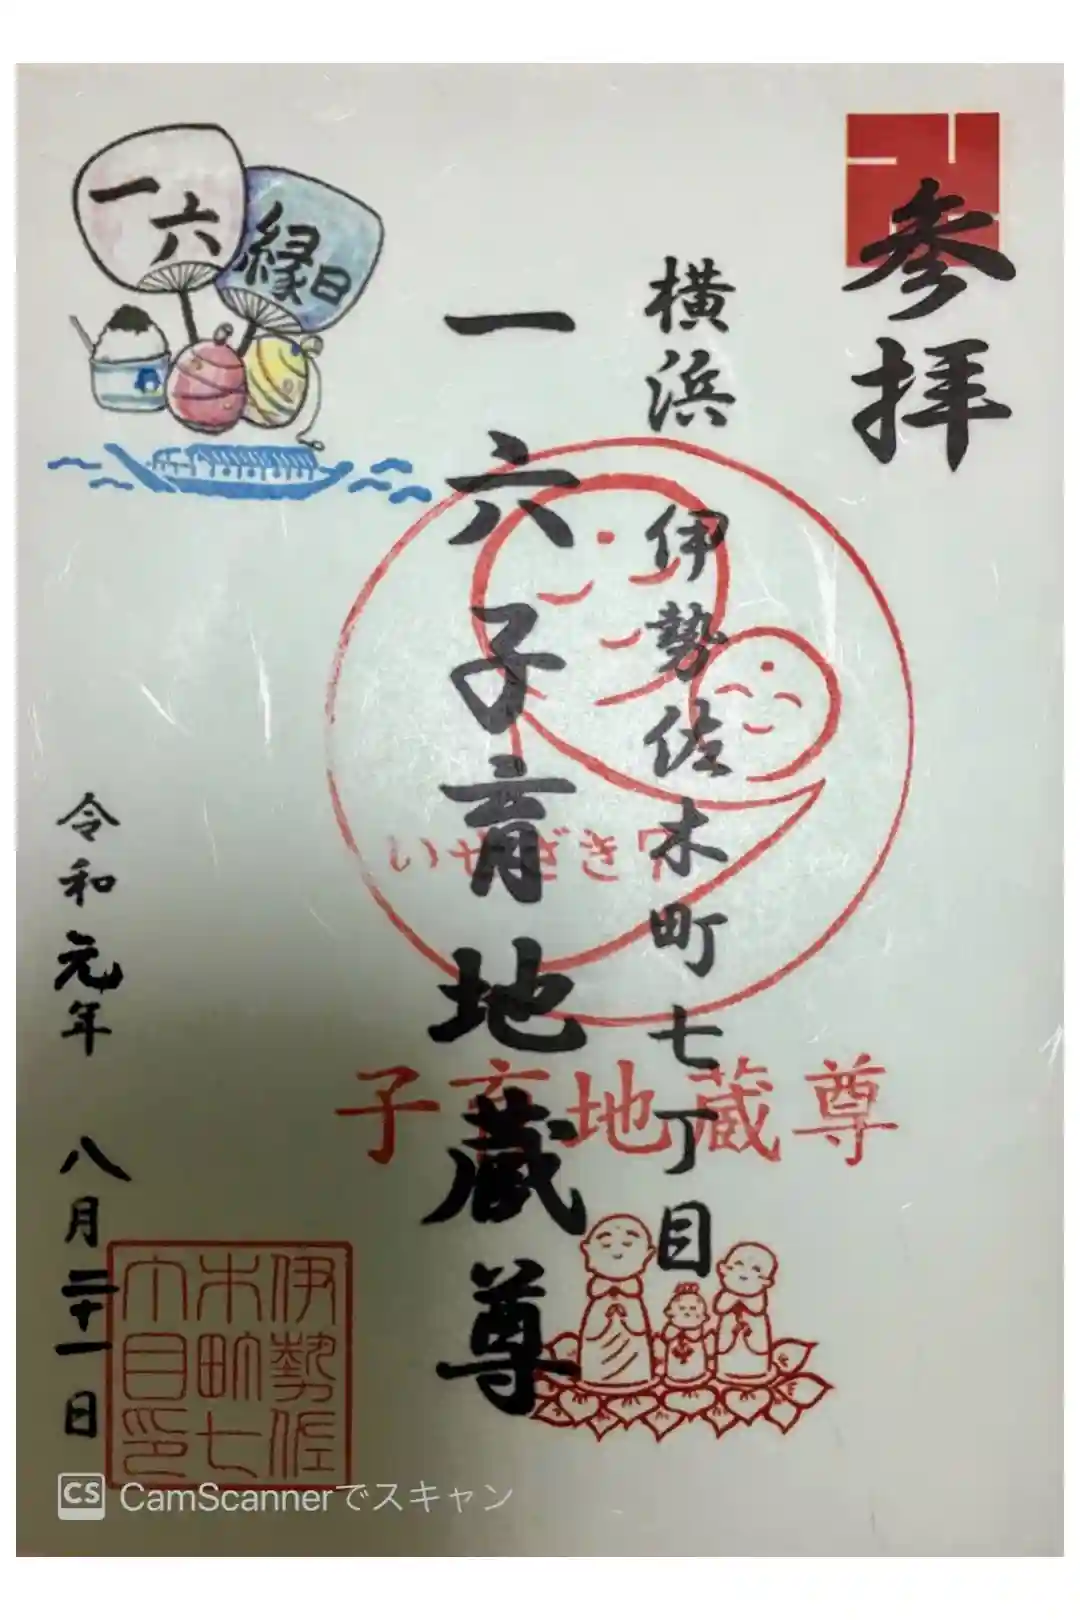 参拝
横浜 伊勢佐木町七丁目
一六子育地蔵尊
一六
縁日
いせざき7
子育地蔵尊
令和元年 八月二十一日
伊勢佐
木町七
丁目印
CS CamScannerでスキャン